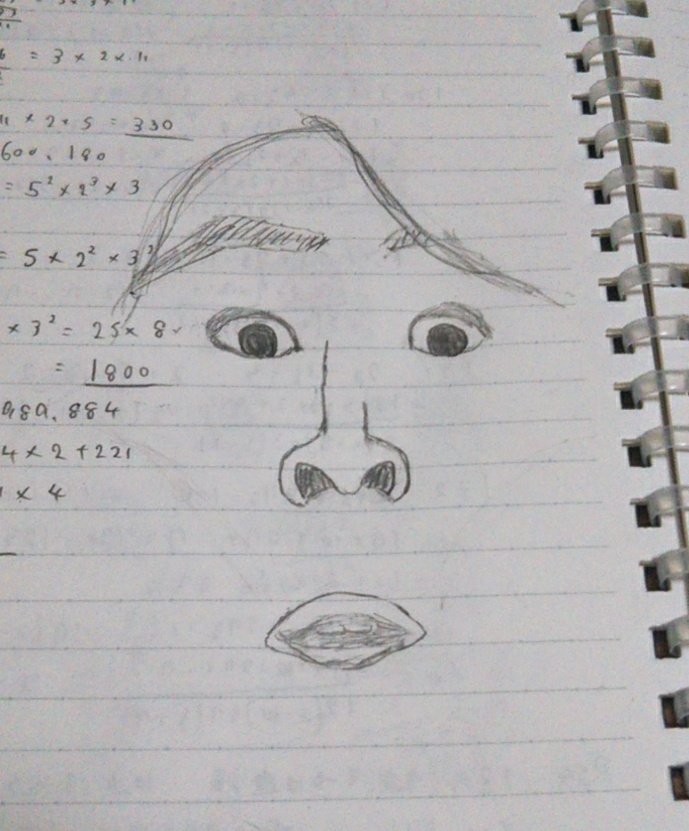 = 3 × 2 × 11
11 × 2 × 5 = 330
600, 180
= 5² × 2³ × 3
= 5 × 2² × 3²
× 3² = 25 × 8
= 1800
884
4 × 2 + 221
× 4